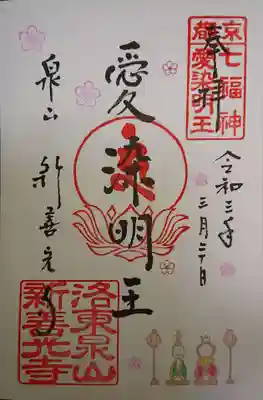 京七福神
愛染明王
奉拝
令和三年
三月二十日
愛染明王
泉山 新善光寺
洛東泉山
新善光寺